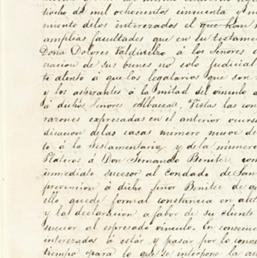 dicho de mil ochocientos cincuenta y
miento delos interezados el que han
amplias facultades que en su testamen
Doña Dolores Valdivielso á los Señores
nacion de sus bienes no solo judicial
to atento á que los legatarios que son
y los aspirantes á la mitad del vinculo
á dichos Señores albaceas; Vistas las con
razones expresadas en el anterior
dicacion de las casas numero nueve de
to á la testamentaria y de la numero
Plateros á Don Fernando Benitez com
inmediato sucesor al Condado de San
prevencion á dicho Señor Benitez de
ello quede formal constancia en
y la declaracion á fabor de su cliente
sucesor al espresado vinculo. En consecuen
interezados á estar y pasar por lo conv
tiempo, para lo que se interpone la au